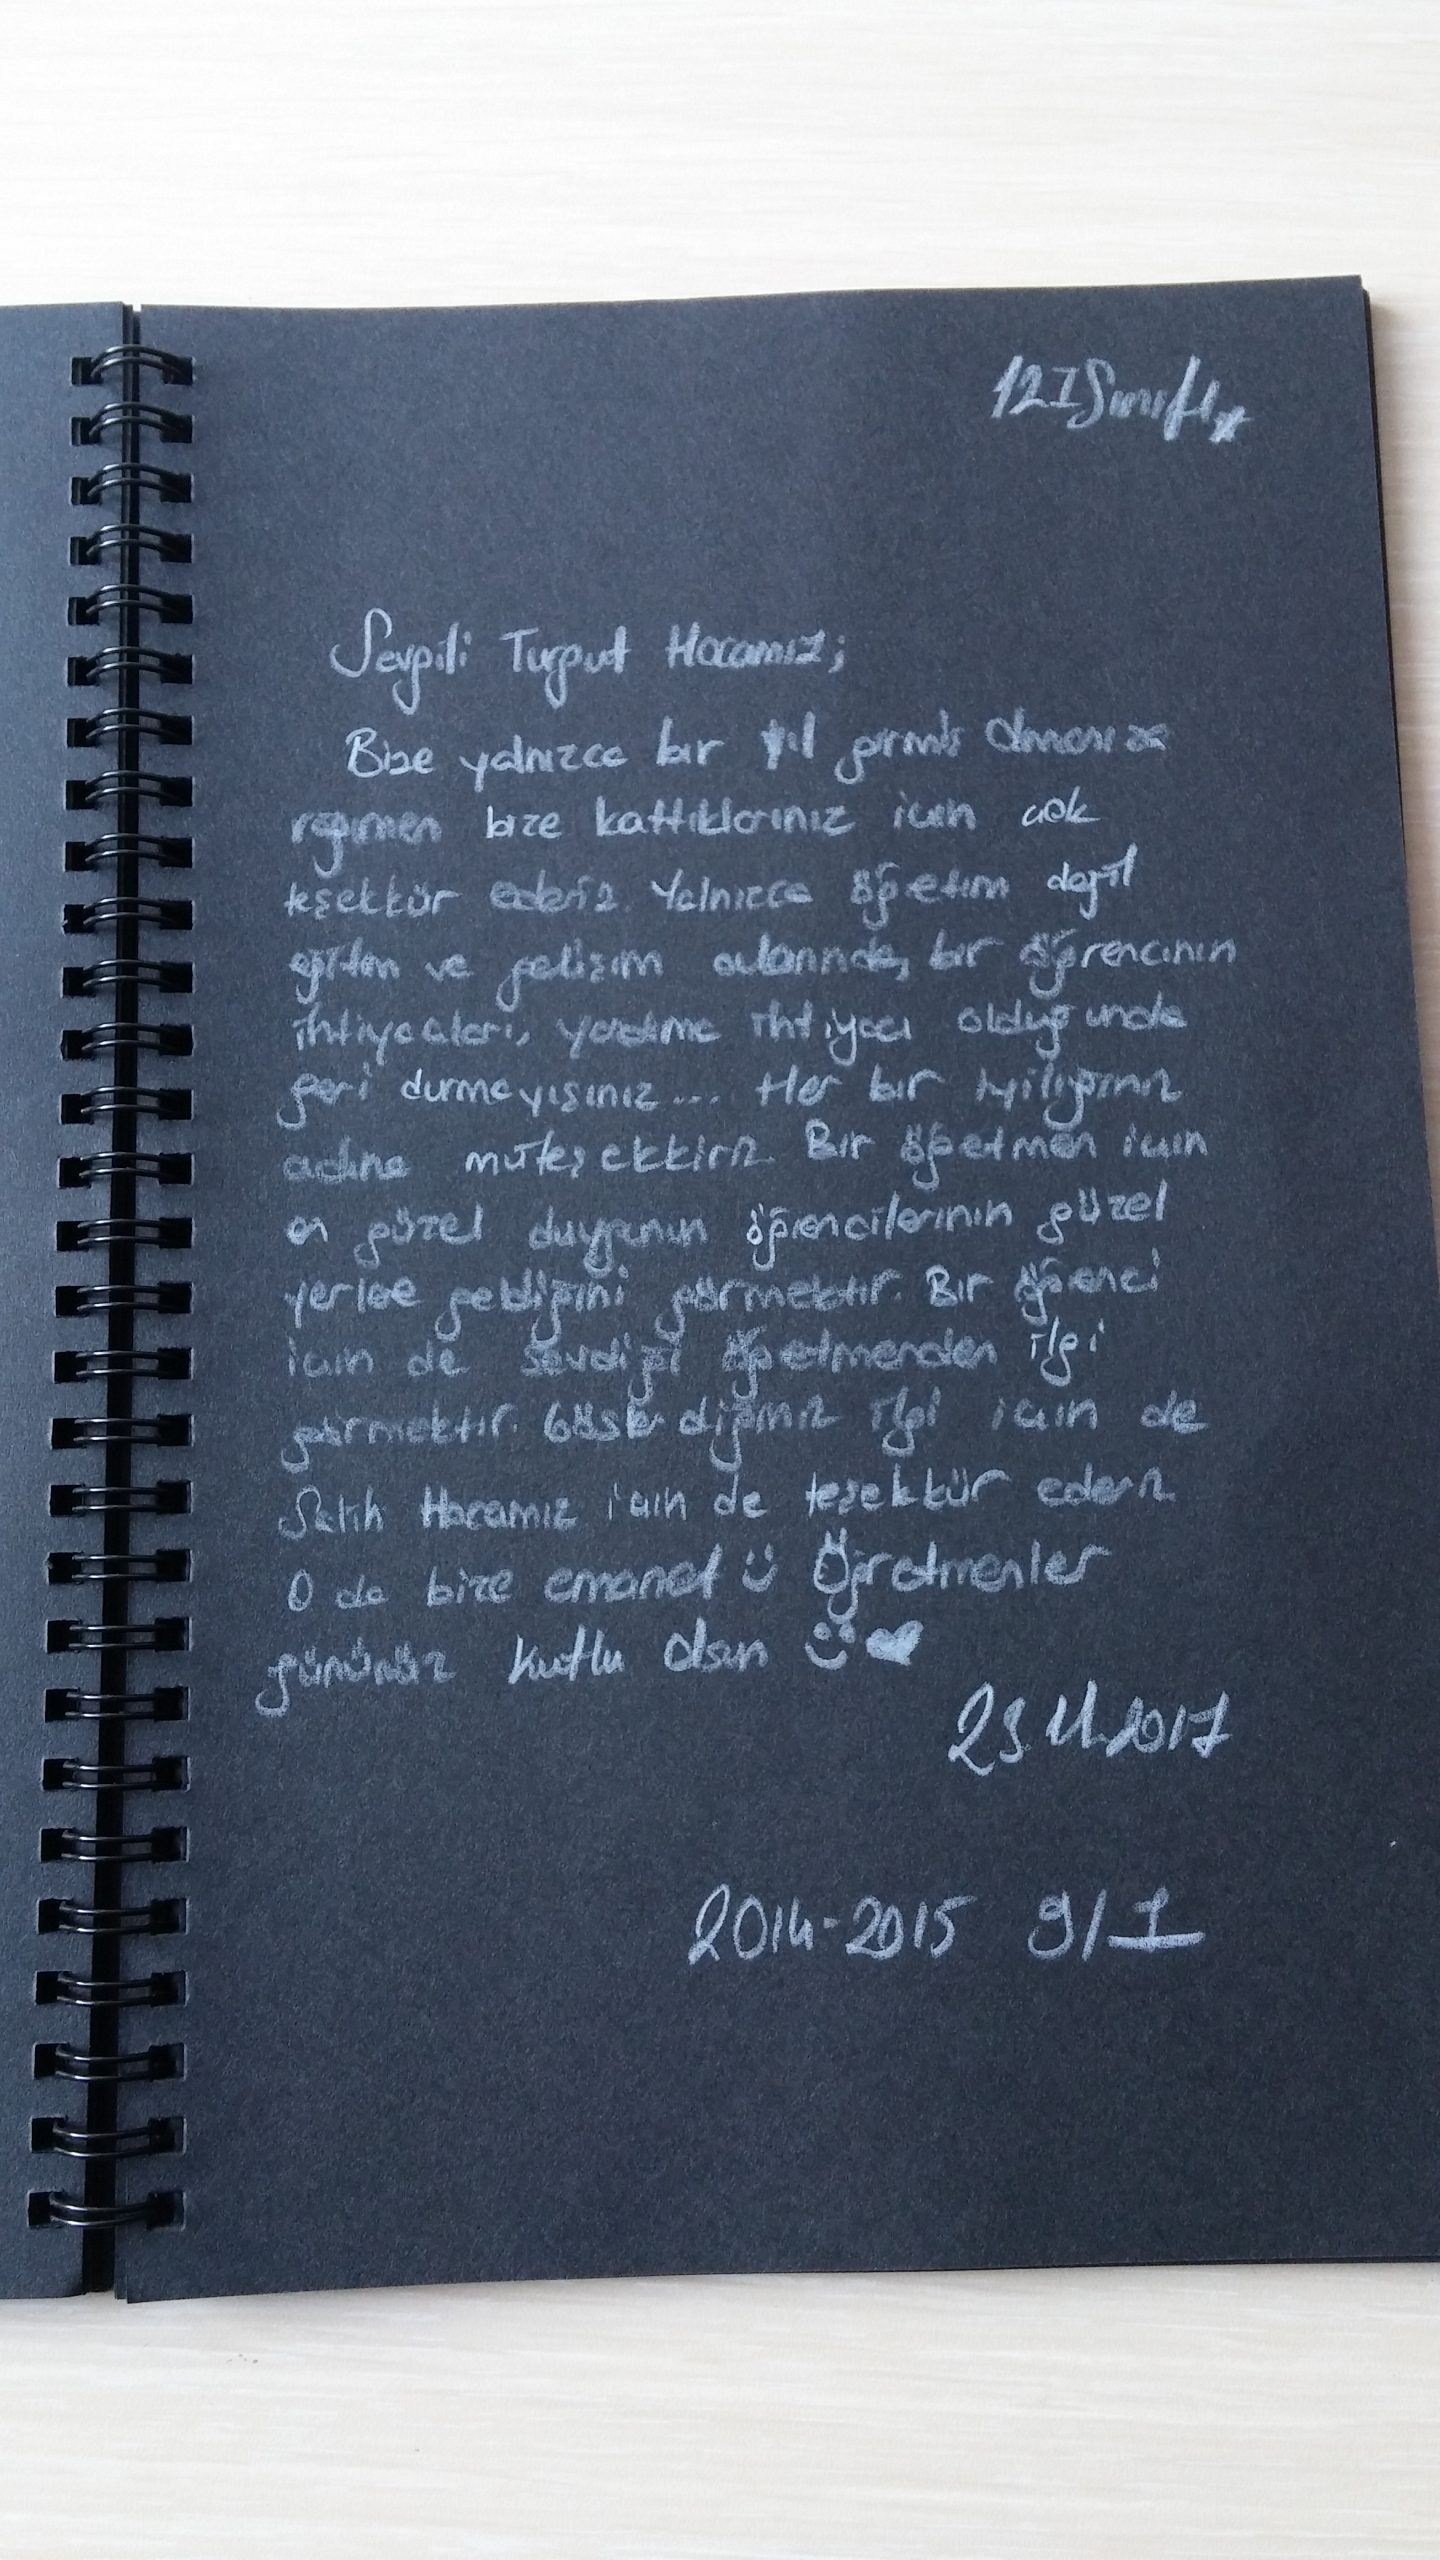 12 I Sınıfı
Sevgili Turgut Hocamız;
Bize yalnızca bir yıl girmiş olmanıza
rağmen bize kattıklarınız için çok
teşekkür ederiz. Yalnızca öğretim değil
eğitim ve gelişim adına, bir öğrencinin
ihtiyaçları, yardıma ihtiyacı olduğunda
geri durmayışınız... Her bir iyiliğiniz
adına müteşekkiriz. Bir öğretmen için
en güzel duygunun öğrencilerinin güzel
yerlere geldiğini görmektir. Bir öğrenci
için de sevdiği öğretmenden ilgi
görmektir. Gösterdiğiniz ilgi için de
Salih Hocamız için de teşekkür ederiz.
O da bize emanet :) Öğretmenler
gününüz kutlu olsun :) ♥
23.11.2017
2014-2015 9/1